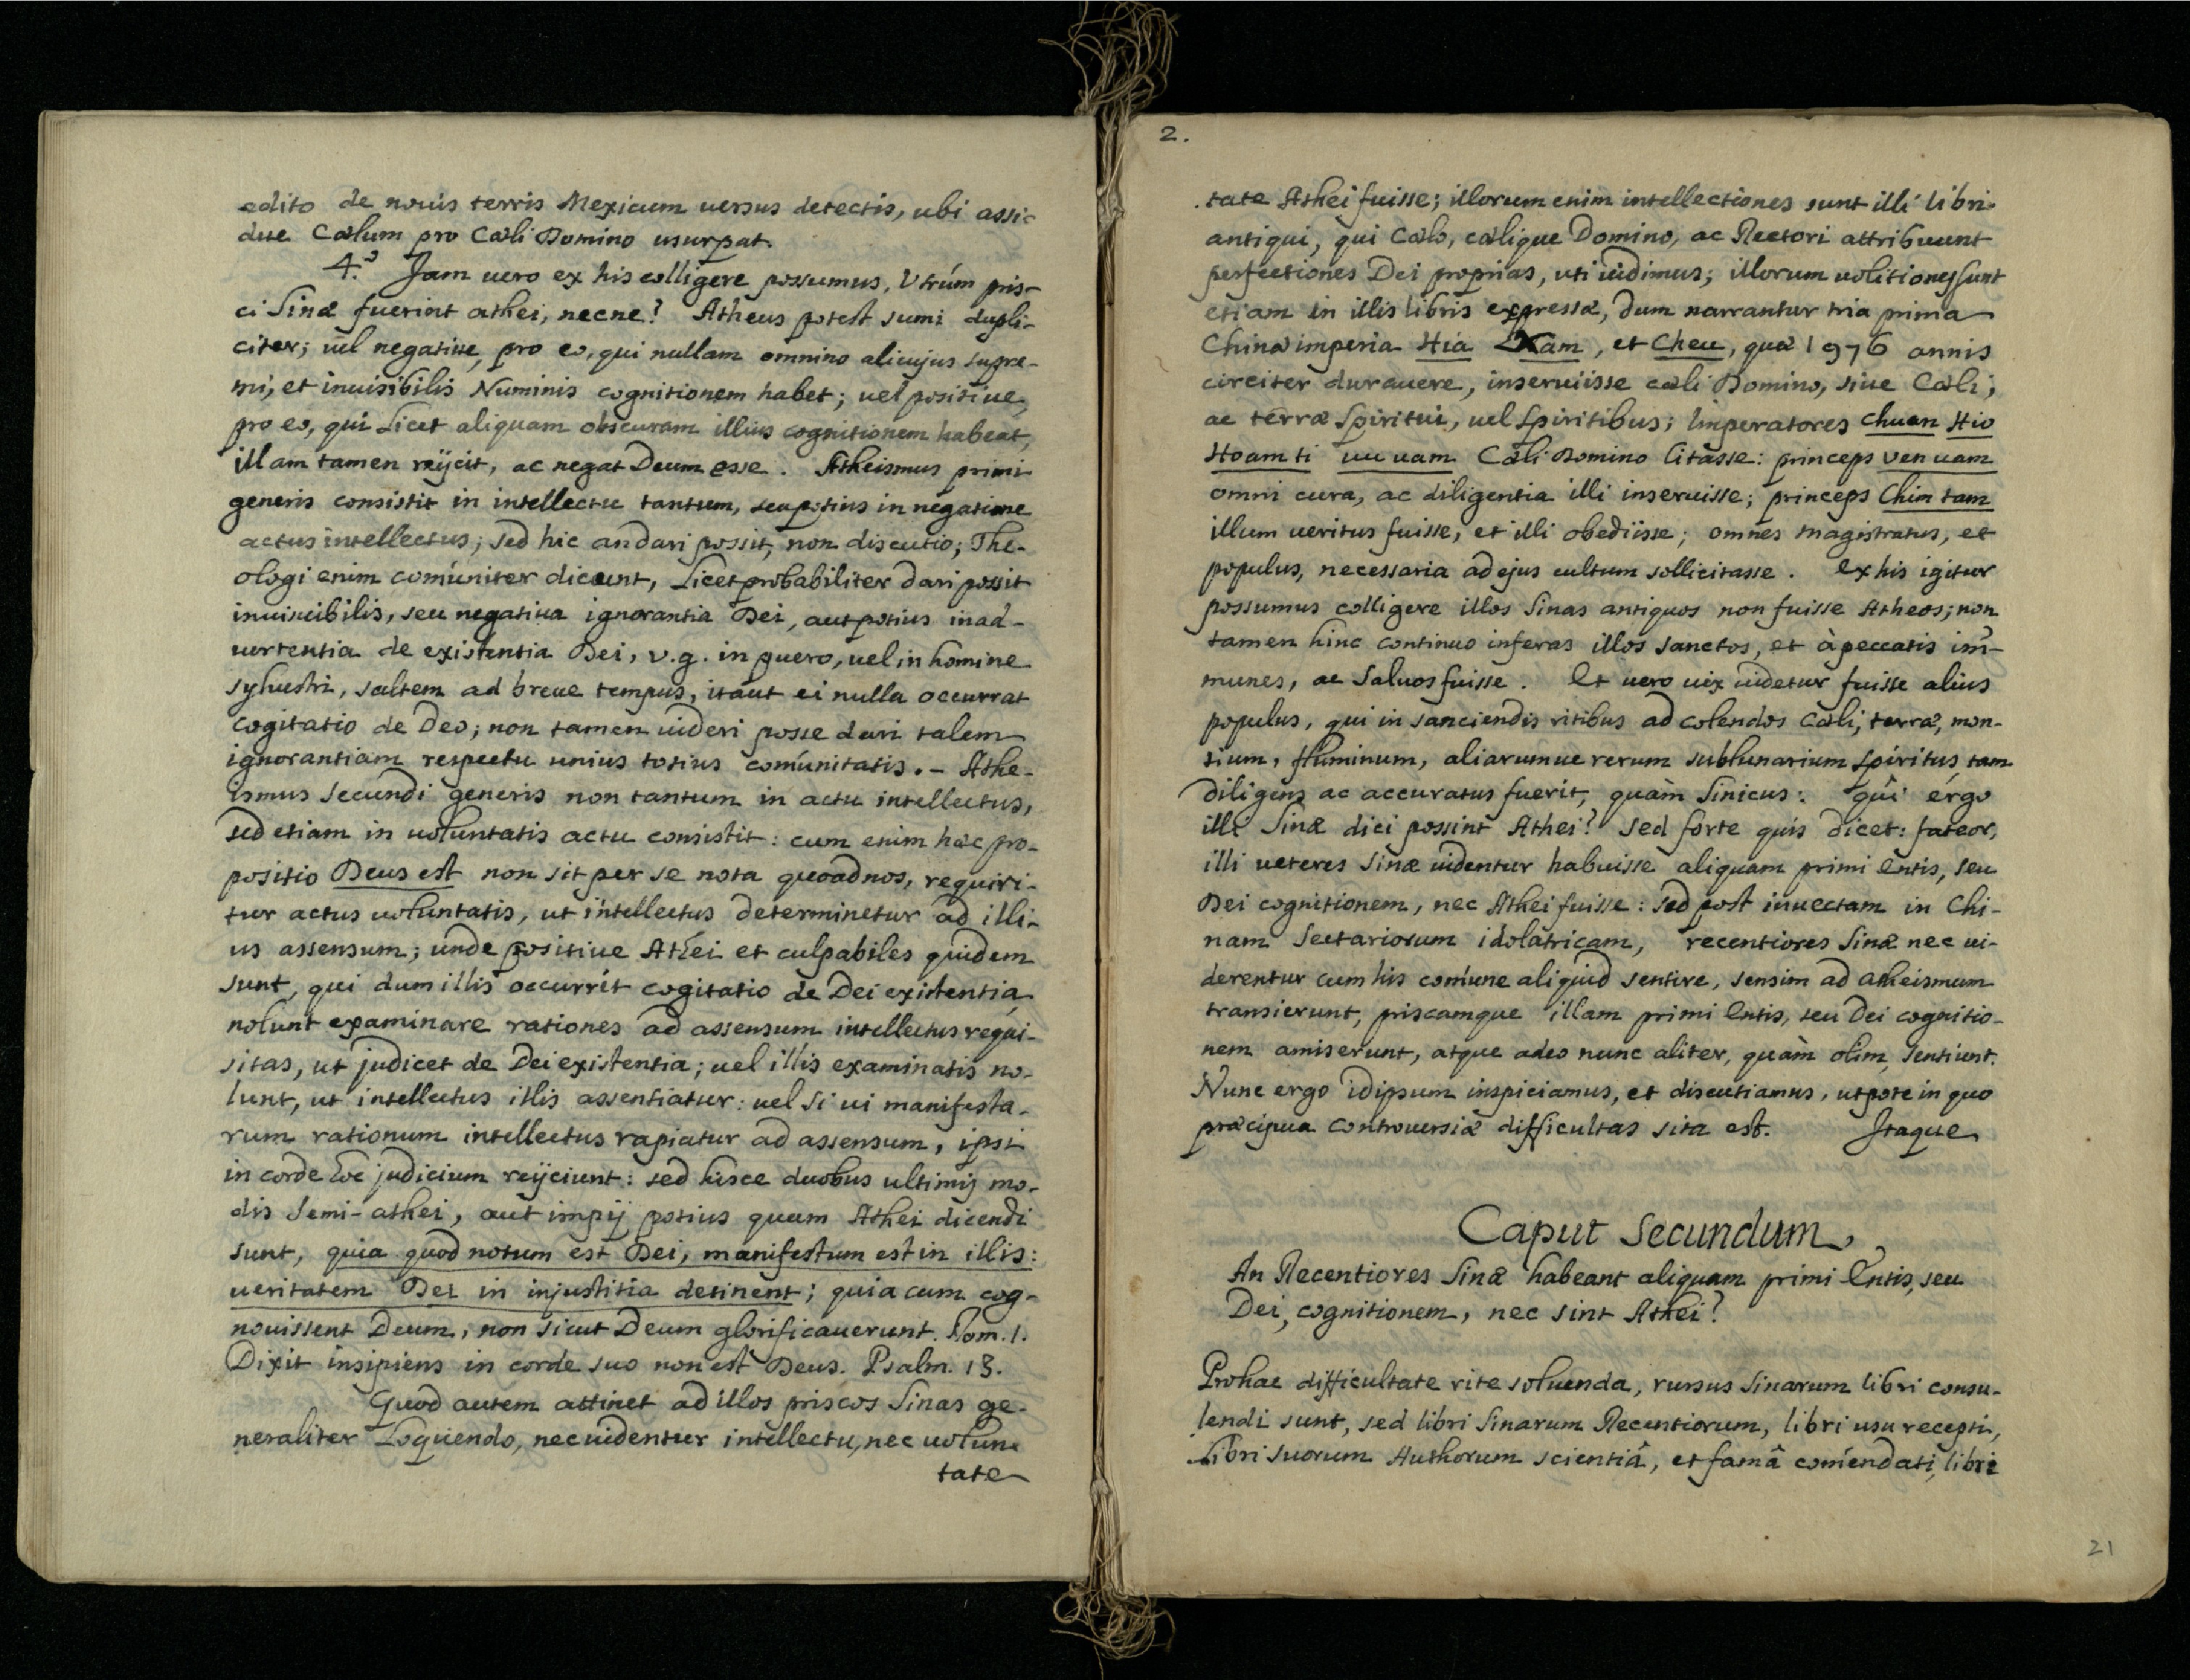 edito de novis terris Mexicum versus detectis, ubi assi-
due Cælum pro Cæli Domino usurpat.
4.º Jam vero ex his colligere possumus, Utrúm pris-
ci Sinæ fuerint athei, necne? Atheus potest sumi dupli-
citer; vel negative, pro eo, qui nullam omnino alicujus supre-
mi, et invisibilis Numinis cognitionem habet; vel positive,
pro eo, qui Licet aliquam obscuram illius cognitionem habeat,
illam tamen reijcit, ac negat Deum esse. Atheismus primi
generis consistit in intellectu tantum, seu potius in negatione
actus intellectus; sed hic an dari possit, non discutio; The-
ologi enim comúniter dicunt, Licet probabiliter dari possit
invincibilis, seu negativa ignorantia Dei, aut potius inad-
vertentia de existentia Dei, v.g. in puero, vel in homine
sylvestri, saltem ad breve tempus, itaut ei nulla occurrat
cogitatio de Deo; non tamen videri posse dari talem
ignorantiam respectu unius totius comúnitatis. - Athe-
ismus secundi generis non tantum in actu intellectus,
sed etiam in voluntatis actu consistit: cum enim hæc pro-
positio Deus est non sit per se nota quoad nos, requiri-
tur actus voluntatis, ut intellectus determinetur ad illi-
us assensum; unde positive Athei et culpabiles quidem
sunt, qui dum illis occurrit cogitatio de Dei existentia,
nolunt examinare rationes ad assensum intellectus requi-
sitas, ut judicet de Dei existentia; vel illis examinatis no-
lunt, ut intellectus illis assentiatur: vel si vi manifesta-
rum rationum intellectus rapiatur ad assensum, ipsi
in corde hoc judicium reijciunt: sed hisce duobus ultimis mo-
dis Semi-athei, aut impij potius quam Athei dicendi
sunt, quia quod notum est Dei, manifestum est in illis:
veritatem Dei in injustitia detinent; quia cum cog-
novissent Deum, non sicut Deum glorificaverunt. Rom. 1.
Dixit insipiens in corde suo non est Deus. Psalm. 13.
Quod autem attinet ad illos priscos Sinas ge-
neraliter Loquendo, nec videntur intellectu, nec volun-
tate
2.
tate Athei fuisse; illorum enim intellectiones sunt illi libri
antiqui, qui Cælo, cælique Domino, ac Rectori attribuunt
perfectiones Dei proprias, uti vidimus; illorum volitiones sunt
etiam in illis libris expressæ, dum narrantur tria prima
Chinæ imperia Hia Xam, et Cheu, quæ 1976 annis
circiter duravere, inserviisse cæli Domino, sive Cæli,
ac terræ Spiritui, vel Spiritibus; Imperatores Chuen Hio
Hoam ti vu vam Cæli Domino litasse: princeps Ven vam
omni cura, ac diligentia illi inservisse; princeps Chim tam
illum veritus fuisse, et illi obediisse; omnes magistratus, et
populus, necessaria ad ejus cultum sollicitasse. Ex his igitur
possumus colligere illos Sinas antiquos non fuisse Atheos; non
tamen hinc continuo inferas illos sanctos, et à peccatis im̃-
munes, ac Salvos fuisse. Et vero vix videtur fuisse alius
populus, qui in sanciendis ritibus ad colendos Cæli, terræ, mon-
tium, fluminum, aliarumve rerum sublunarium Spiritus, tam
diligens ac accuratus fuerit, quàm Sinicus: quî ergo
illi Sinæ dici possint Athei? Sed forte quis dicet: fateor,
illi veteres Sinæ videntur habuisse aliquam primi Entis, seu
Dei cognitionem, nec Athei fuisse: sed post invectam in Chi-
nam Sectariorum idolatricam, recentiores Sinæ nec vi-
derentur cum his comúne aliquid sentire, sensim ad atheismum
transierunt, priscamque illam primi Entis, seu Dei cognitio-
nem amiserunt, atque adeo nunc aliter, quàm olim, sentiunt.
Nunc ergo idipsum inspiciamus, et discutiamus, utpote in quo
præcipua controversiæ difficultas sita est. Itaque
Caput Secundum.
An Recentiores Sinæ habeant aliquam primi Entis, seu
Dei, cognitionem, nec sint Athei?
Pro hac difficultate rite solvenda, rursus Sinarum libri consu-
lendi sunt, sed libri Sinarum Recentiorum, libri usu recepti,
Libri suorum Authorum scientiâ, et famâ coméndati, libri
21